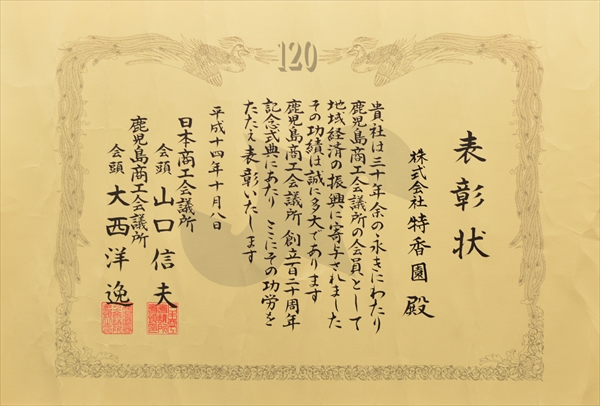 120
表彰状
株式会社 特香園 殿
貴社は三十年余の永きにわたり
鹿児島商工会議所の会員として
地域経済の振興に寄与されました
その功績は誠に多大であります
鹿児島商工会議所 創立百二十周年
記念式典にあたり ここにその功労を
たたえ表彰いたします
平成十四年十月八日
日本商工会議所
会頭 山口信夫
鹿児島商工会議所
会頭 大西洋逸